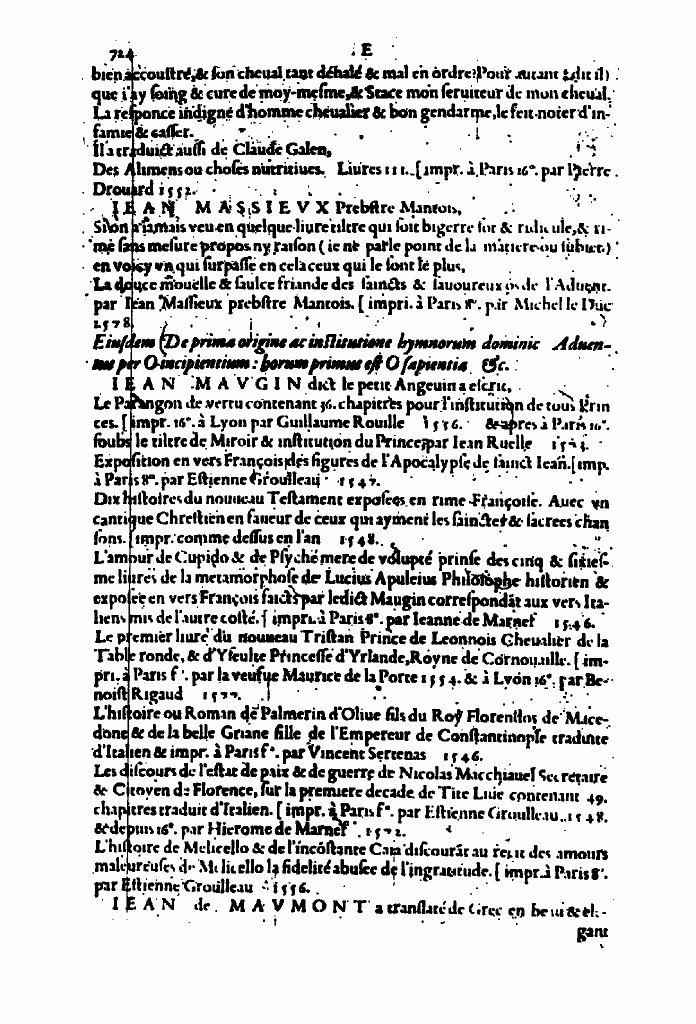 724 . E
bien accoustré, & son cheual tant dehalé & mal en ordre? Pour autant (dit il)
que i'ay soing & cure de moy-mesme, & Stace mon seruiteur de mon cheual.
La responce indigné d'homme cheualier & bon gendarme, le feit noter d'in-
famie & casser.
Il a traduict aussi de Claude Galen,
Des Alimens ou choses nutritiues. Liures III. [impr. à Paris 16°. par Pierre
Drouard 1552.
IEAN MASSIEVX Prebstre Mantois,
Si lon a iamais veu en quelque liure tiltre qui soit bigerre sot & ridicule, & ri-
mé sans mesure propos ny raison (ie ne parle point de la matiere ou subiet)
en voicy vn qui surpasse en cela ceux qui le sont le plus,
La douce mouelle & saulce friande des saincts & sauoureux os de l'Aduent.
par Iean Massieux prebstre Mantois. [impri. à Paris 8°. par Michel le Duc
1578.
Eiusdem (De prima origine ac institutione hymnorum dominic Aduen-
tus per O incipientium: horum primus est O sapientia &c.
IEAN MAVGIN dict le petit Angeuin a escrit,
Le Parangon de vertu contenant 36. chapitres pour l'institution de tous Prin
ces. [impr. 16°. à Lyon par Guillaume Rouille 1556. & apres à Paris 16°.
soubs le tiltre de Miroir & institution du Prince, par Iean Ruelle
Exposition en vers François des figures de l'Apocalypse de sainct Iean. [imp.
à Paris 8°. par Estienne Groulleau 1547.
Dix histoires du nouueau Testament exposees en rime Françoise. Auec vn
cantique Chrestien en faueur de ceux qui ayment les sainctes & sacrees chan
sons. [impr. comme dessus en l'an 1548.
L'amour de Cupido & de Psyché mere de volupté prinse des cinq & sixies-
me liures de la metamorphose de Lucius Apuleius Philosophe historien &
exposee en vers François faicts par ledict Maugin correspondāt aux vers Ita-
liens mis de l'autre costé. [impri. à Paris 8°. par Ieanne de Marnef 1546.
Le premier liure du nouueau Tristan Prince de Leonnois Cheualier de la
Table ronde, & d'Yseulte Princesse d'Yrlande, Royne de Cornouaille. [im-
pri. à Paris f°. par la veufue Maurice de la Porte 1554. & à Lyon 16°. par Be-
noist Rigaud 1577.
L'histoire ou Roman de Palmerin d'Oliue fils du Roy Florendos de Mace-
done & de la belle Griane fille de l'Empereur de Constantinople traduite
d'Italien & impr. à Paris f°. par Vincent Sertenas 1546.
Les discours de l'estat de paix & de guerre de Nicolas Macchiauel Secretaire
& Citoyen de Florence, sur la premiere decade de Tite Liue contenant 49.
chapitres traduit d'Italien. [impr. à Paris f°. par Estienne Groulleau. 1548.
& depuis 16°. par Hierome de Marnef 1572.
L'histoire de Melicello & de l'incōstante Caia discourāt au recit des amours
maleureuses de Melicello la fidelité abusee de l'ingratitude. [impr. à Paris 8°.
par Estienne Groulleau 1556.
IEAN de MAVMONT a translaté de Grec en beau & ele-
gant